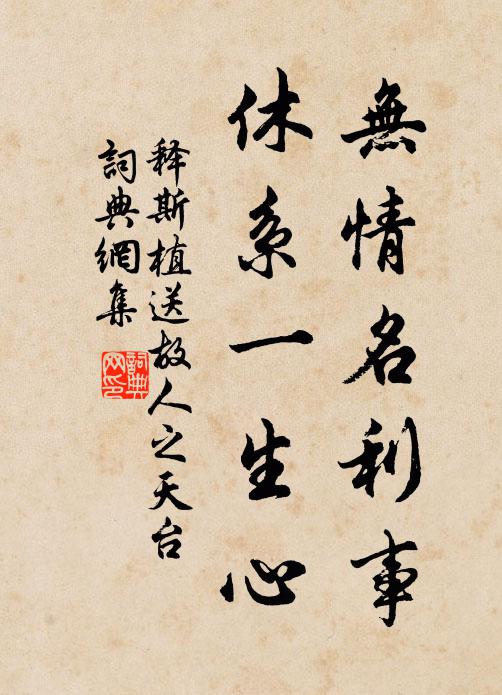 無情名利事
休系一生心
释斯植送故人之天台
詞典網集
詞典网印